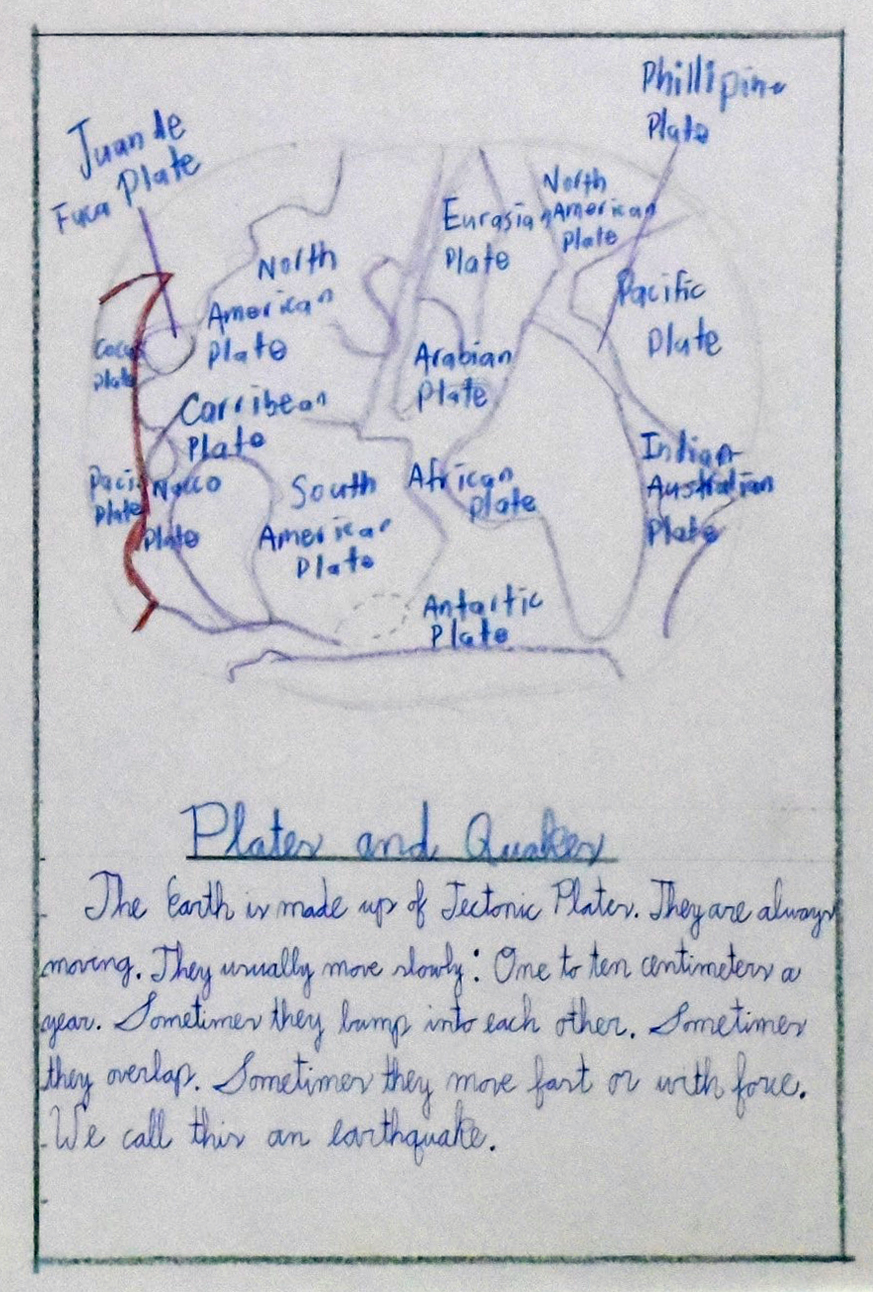 Phillipine
Plate
Juan de
Fuca Plate
North
American
Plate
Eurasian
Plate
North
American
Plate
Pacific
Plate
Cocus
Plate
Arabian
Plate
Carribean
Plate
Pacific
Plate
Nazco
Plate
South
American
Plate
African
Plate
Indian-
Australian
Plate
Antartic
Plate
Plates and Quakes
The Earth is made up of Tectonic Plates. They are always
moving. They usually move slowly: One to ten centimeters a
year. Sometimes they bump into each other. Sometimes
they overlap. Sometimes they move fast or with force.
We call this an earthquake.